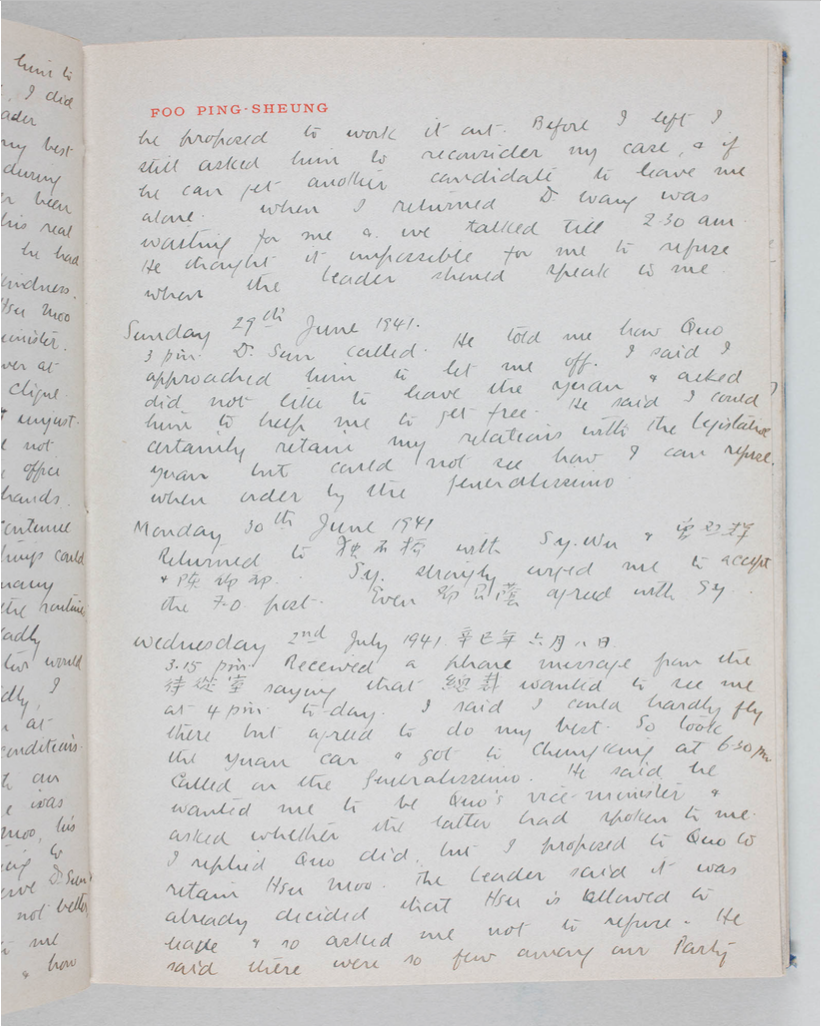 him to
I did
ader
my best
during
er been
his real
he had
kindness.
Hsu Moo
minister.
ver at
clique
t unjust.
l not
office
hands.
continue
things could
many
the routine
adly
would
dly, I
n at
conditions.
th an
e was
moo, his
ing to
erve Dr Sun
not better
to me
& how
FOO PING-SHEUNG
he proposed to work it out. Before I left I
still asked him to reconsider my case, & if
he can get another candidate to leave me
alone. When I returned Dr. Wang was
waiting for me & we talked till 2.30 am.
He thought it impossible for me to refuse
when the leader should speak to me.
Sunday 29th June 1941.
3 p.m. Dr. Sun called. He told me how Quo
approached him to let me off. I said I
did not like to leave the yuan & asked
him to help me to get free. He said I could
certainly retain my relations with the legislative
yuan but could not see how I can refuse
when order by the generalissimo
Monday 30th June 1941
Returned to with Sy. Wu &
& 陳 Sy. strongly urged me to accept
the F.O post. Even agreed with Sy.
Wednesday 2nd July 1941. 辛巳年六月八日
3.15 p.m. Received a phone message from the
侍從室 saying that 總裁 wanted to see me
at 4 p.m. to-day. I said I could hardly fly
there but agreed to do my best. So took
the yuan car & got to Chungking at 6.30 pm
Called on the generalissimo. He said he
wanted me to be Quo's vice-minister &
asked whether the latter had spoken to me.
I replied Quo did, but I proposed to Quo to
retain Hsu Moo. The leader said it was
already decided that Hsu is allowed to
leave & so asked me not to refuse. He
said there were so few among our Party